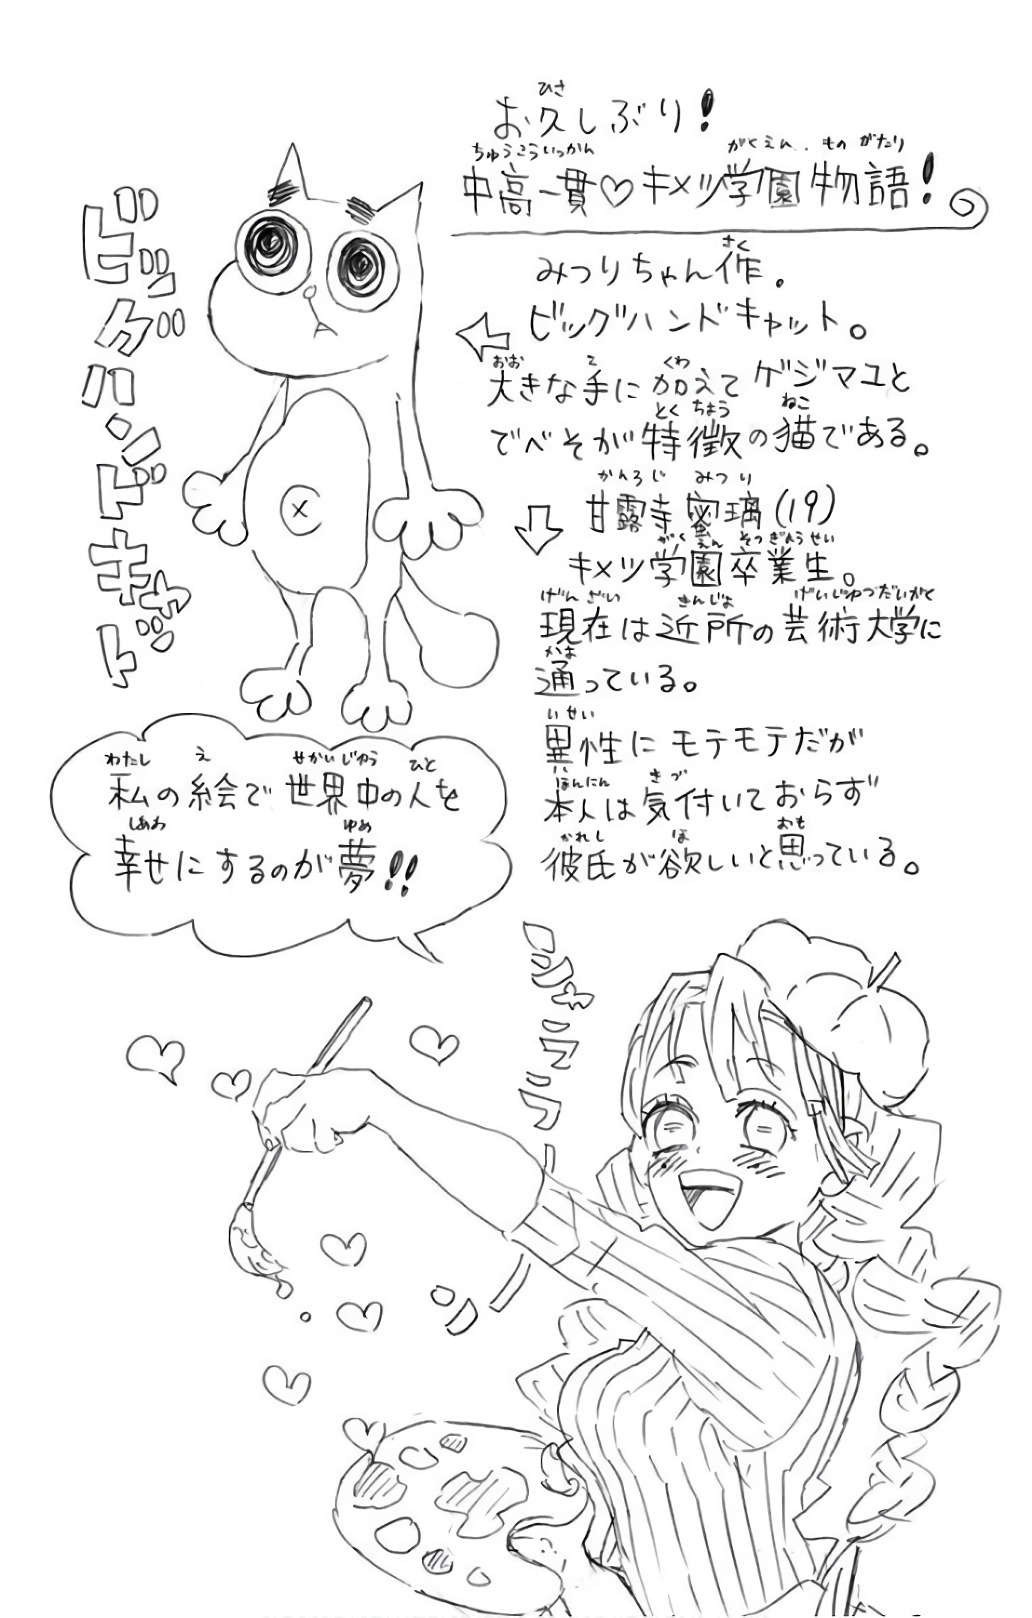 お久しぶり！
中高一貫♡キメツ学園物語！
みつりちゃん作。
ビッグハンドキャット。
大きな手に加えてゲジマユと
でべそが特徴の猫である。
ビッグハンドキャット
甘露寺蜜璃(19)
キメツ学園卒業生。
現在は近所の芸術大学に
通っている。
異性にモテモテだが
本人は気付いておらず
彼氏が欲しいと思っている。
私の絵で世界中の人を
幸せにするのが夢!!
シャララーン